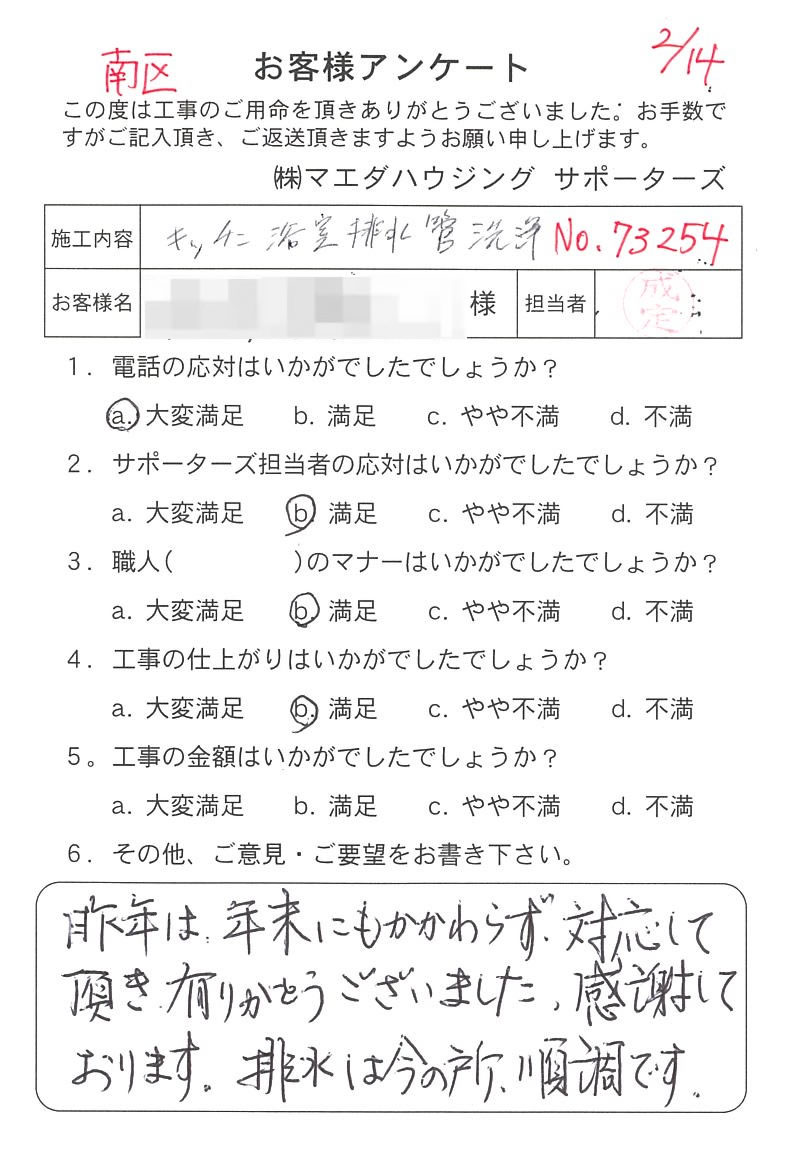 南区 お客様アンケート 2/14
この度は工事のご用命を頂きありがとうございました。お手数で
すがご記入頂き、ご返送頂きますようお願い申し上げます。
㈱マエダハウジング サポーターズ
施工内容 キッチン 浴室 排水管洗浄 No.73254
お客様名 様 担当者 成定
1. 電話の応対はいかがでしたでしょうか?
a. 大変満足 b. 満足 c. やや不満 d. 不満
2. サポーターズ担当者の応対はいかがでしたでしょうか?
a. 大変満足 b. 満足 c. やや不満 d. 不満
3. 職人( )のマナーはいかがでしたでしょうか?
a. 大変満足 b. 満足 c. やや不満 d. 不満
4. 工事の仕上がりはいかがでしたでしょうか?
a. 大変満足 b. 満足 c. やや不満 d. 不満
5。工事の金額はいかがでしたでしょうか?
a. 大変満足 b. 満足 c. やや不満 d. 不満
6. その他、ご意見・ご要望をお書き下さい。
昨年は、年末にもかかわらず、対応して
頂き有りがとうございました、感謝して
おります。排水は今の所、順調です。